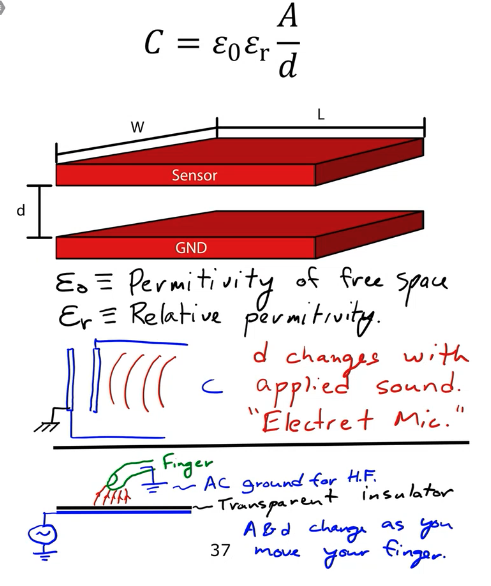 C = ε₀εᵣ A/d
W
L
Sensor
d
GND
εo ≡ Permitivity of free space
εr ≡ Relative permitivity.
d changes with
C
applied sound.
"Electret Mic."
Finger
~ AC ground for H.F.
Transparent insulator
A & d change as you
37
move your finger.